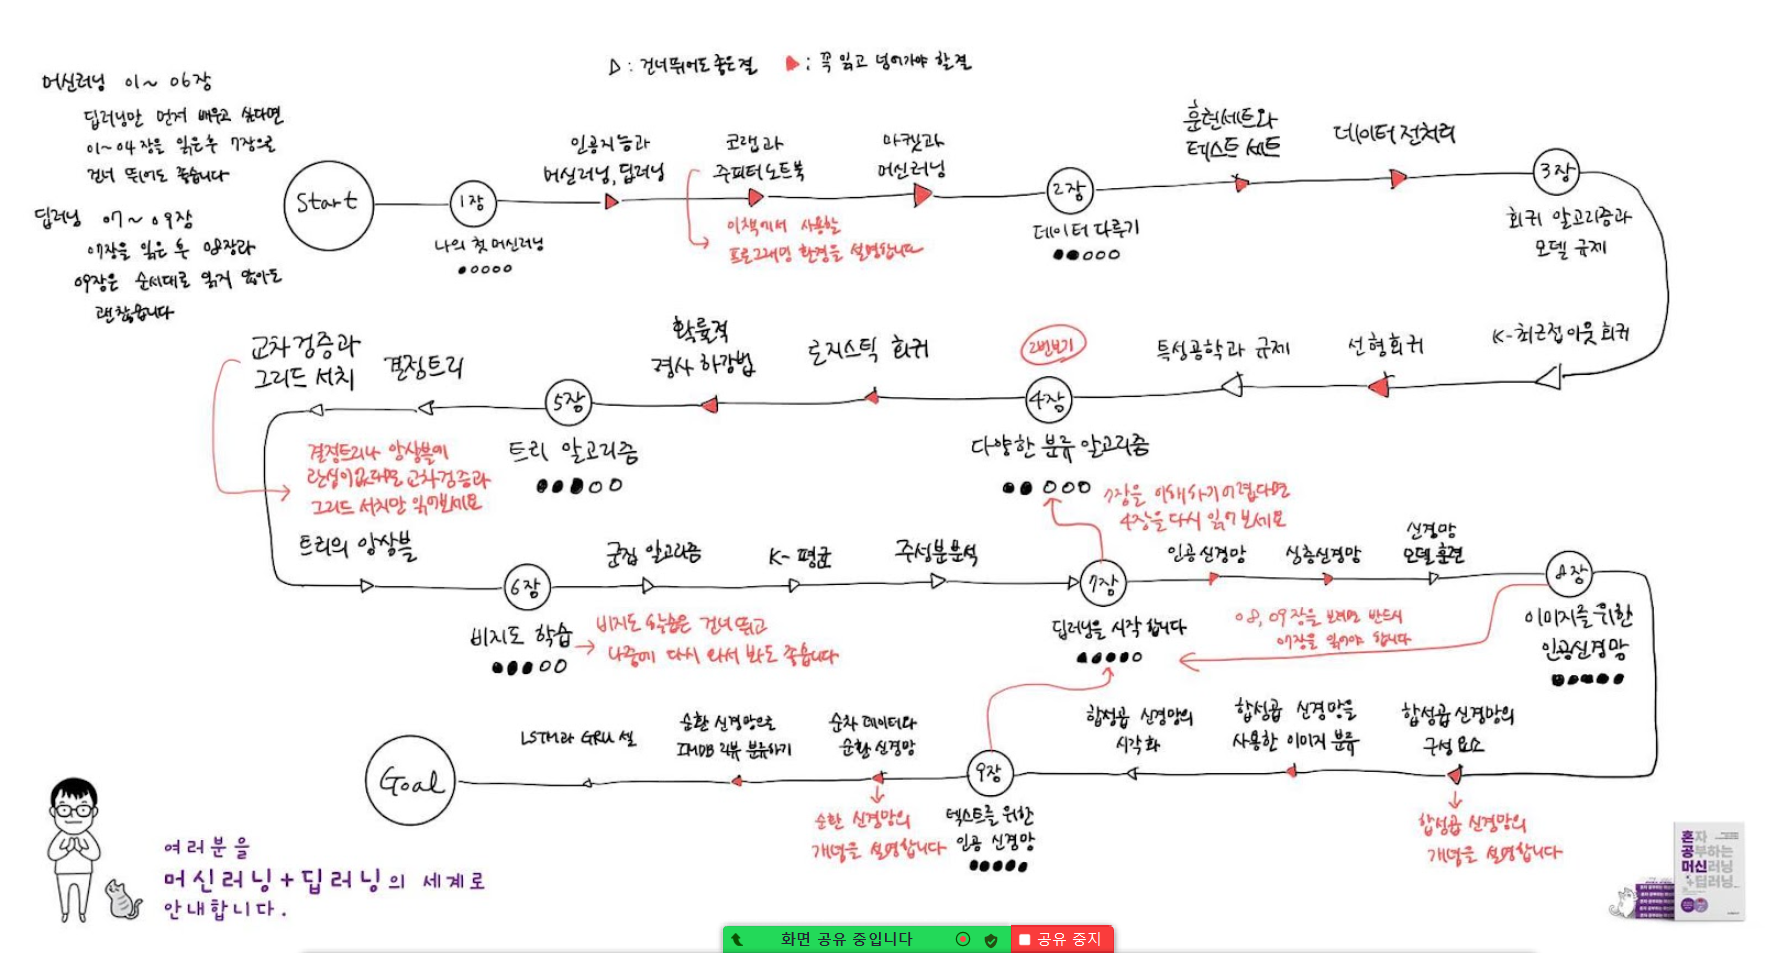 ▷ : 건너뛰어도 좋은 절
▶ : 꼭 읽고 넘어가야 할 절
머신러닝 01~06장
딥러닝만 먼저 배우고 싶다면
01~04장을 읽은 후 7장으로
건너 뛰어도 좋습니다
딥러닝 07~09장
07장을 읽은 후 08장과
09장은 순서대로 읽지 않아도
괜찮습니다
Start
1장
나의 첫 머신러닝
인공지능과
머신러닝, 딥러닝
코랩과
주피터 노트북
이 책에서 사용할
프로그래밍 환경을 설명합니다
마켓과
머신러닝
2장
데이터 다루기
훈련 세트와
테스트 세트
데이터 전처리
3장
회귀 알고리즘과
모델 규제
K-최근접 이웃 회귀
선형 회귀
특성 공학과 규제
2번보기
4장
다양한 분류 알고리즘
로지스틱 회귀
확률적
경사 하강법
5장
트리 알고리즘
결정 트리
교차 검증과
그리드 서치
결정트리나 앙상블에
관심이 없다면 교차 검증과
그리드 서치만 읽어보세요
트리의 앙상블
6장
비지도 학습
비지도 학습은 건너 뛰고
나중에 다시 와서 봐도 좋습니다
군집 알고리즘
K-평균
주성분 분석
7장
딥러닝을 시작합니다
7장을 이해하기 어렵다면
4장을 다시 읽어 보세요
인공 신경망
심층 신경망
신경망
모델 훈련
8장
이미지를 위한
인공 신경망
08, 09장을 보려면 반드시
07장을 읽어야 합니다
합성곱 신경망의
구성 요소
합성곱 신경망의
개념을 설명합니다
합성곱 신경망을
사용한 이미지 분류
합성곱 신경망의
시각화
9장
텍스트를 위한
인공 신경망
순차 데이터와
순환 신경망
순환 신경망의
개념을 설명합니다
순환 신경망으로
IMDB 리뷰 분류하기
LSTM과 GRU 셀
Goal
여러분을
머신러닝+딥러닝의 세계로
안내합니다.
혼자
공부하는
머신러닝
+딥러닝
화면 공유 중입니다
공유 중지